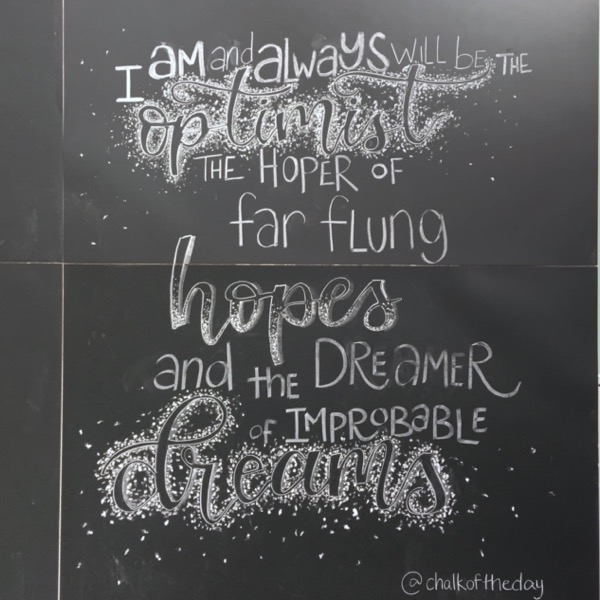 I aM and alwaYs WiLL be THE
optimist
THE HOPER OF
far fLung
hopes
and the DREaMER
of IMPROBABLE
dreams
@chalkoftheday